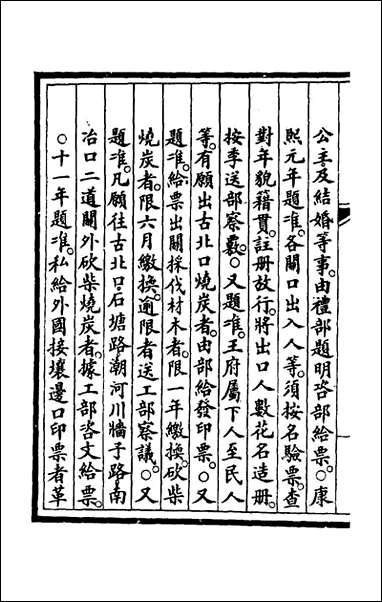 公主及結婚等事。由禮部題明咨部給票。○康
熙元年題准。各關口出入人等。須按名驗票。查
對年貌籍貫。註册故行。將出口人數花名造册。
按季送部察覈。○又題准。王府屬下人至民人
等。有願出古北口燒炭者。由部給發印票。○又
題准。給票出關採伐材木者。限一年繳換。砍柴
燒炭者。限六月繳換。逾限者送工部察議。○又
題准。凡願往古北口。石塘路。潮河川。牆子路。南
冶口二道關外砍柴燒炭者。據工部咨文給票。
○十一年題准。私給外國接壤邊口印票者革